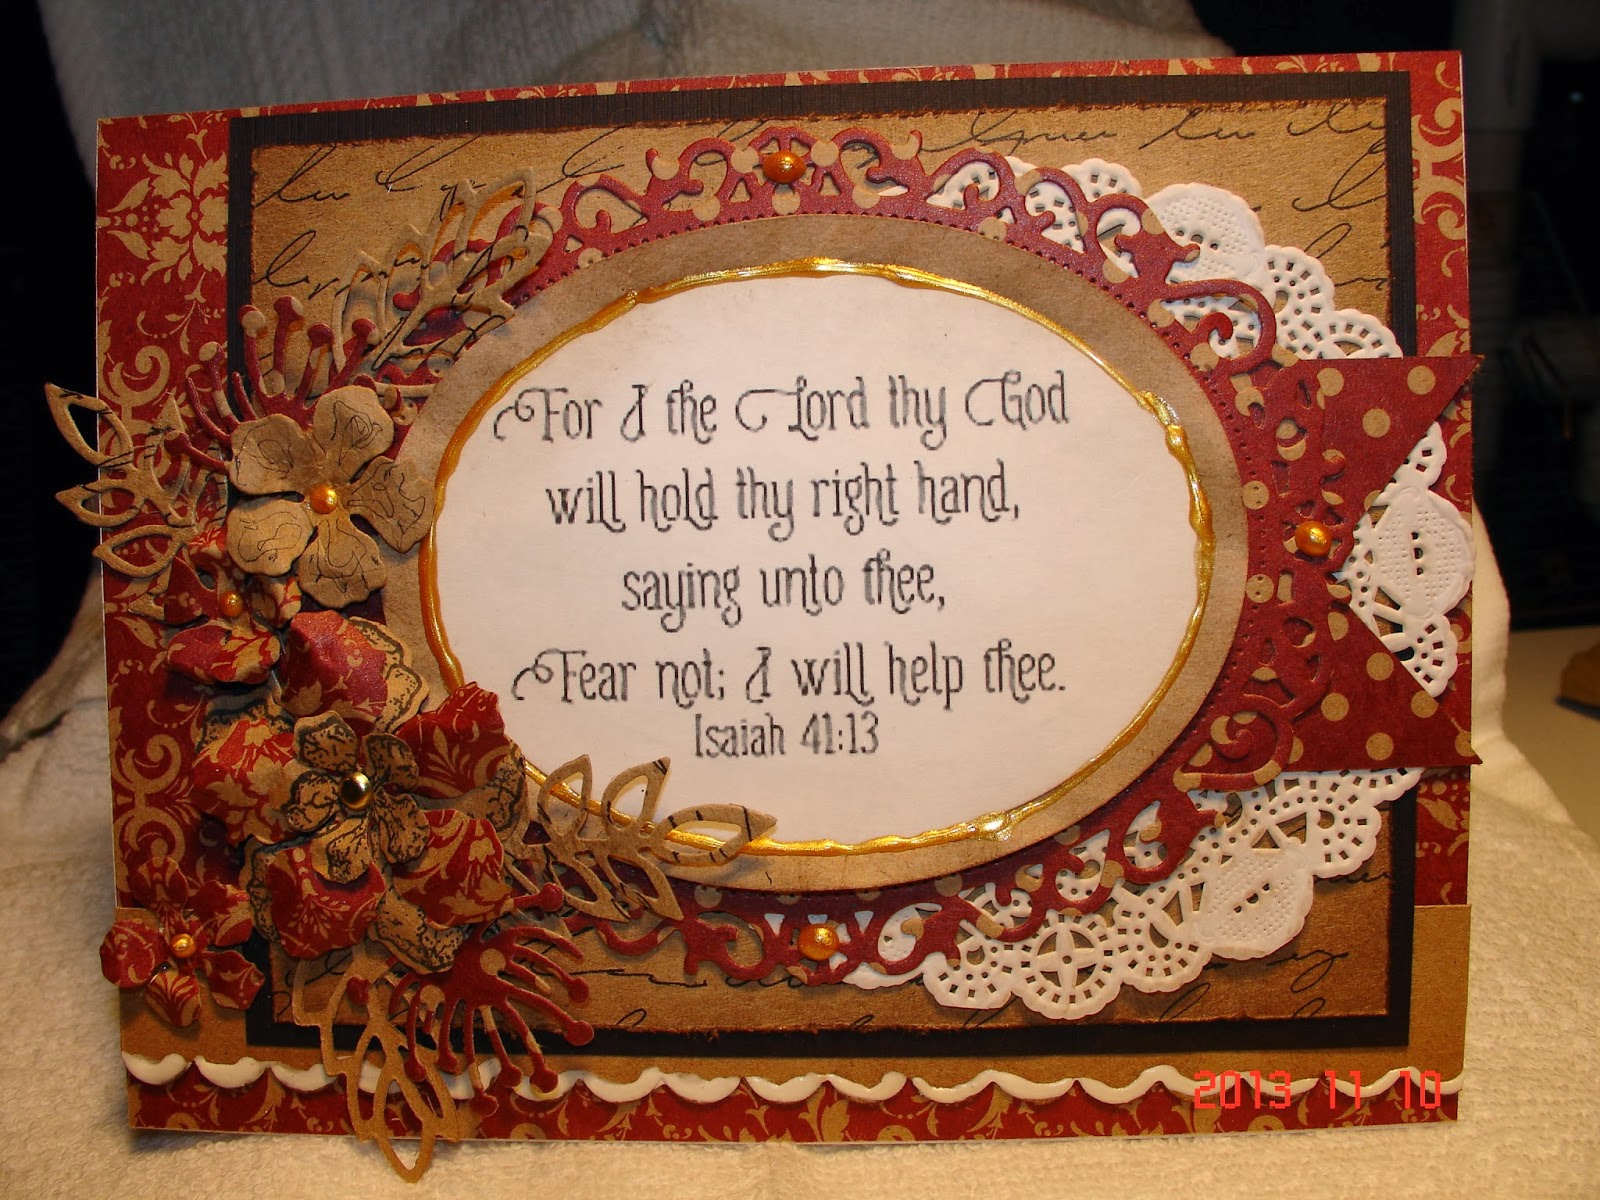 For I the Lord thy God
will hold thy right hand,
saying unto thee,
Fear not; I will help thee.
Isaiah 41:13
2013 11 10